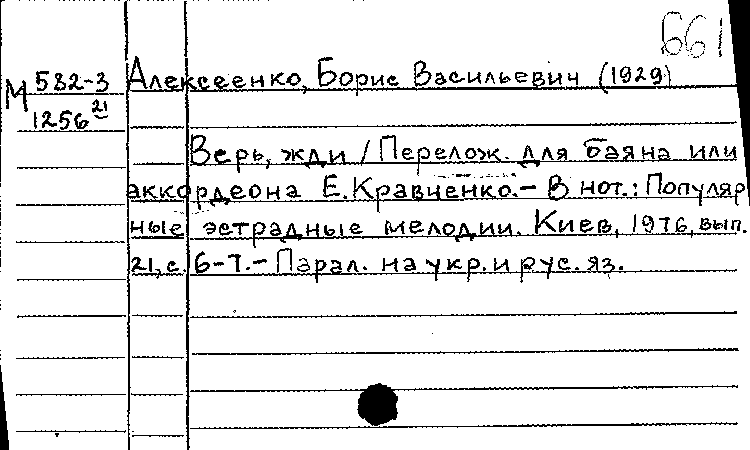 661
М 582-3 Алексеенко, Борис Васильевич (1929)
1256 21
Верь, жди / Перелож. для баяна или
аккордеона Е. Кравченко. – В нот.: Популяр
ные эстрадные мелодии. Киев, 1976, вып.
21, с. 6-7. – Парал. на укр. и рус. яз.